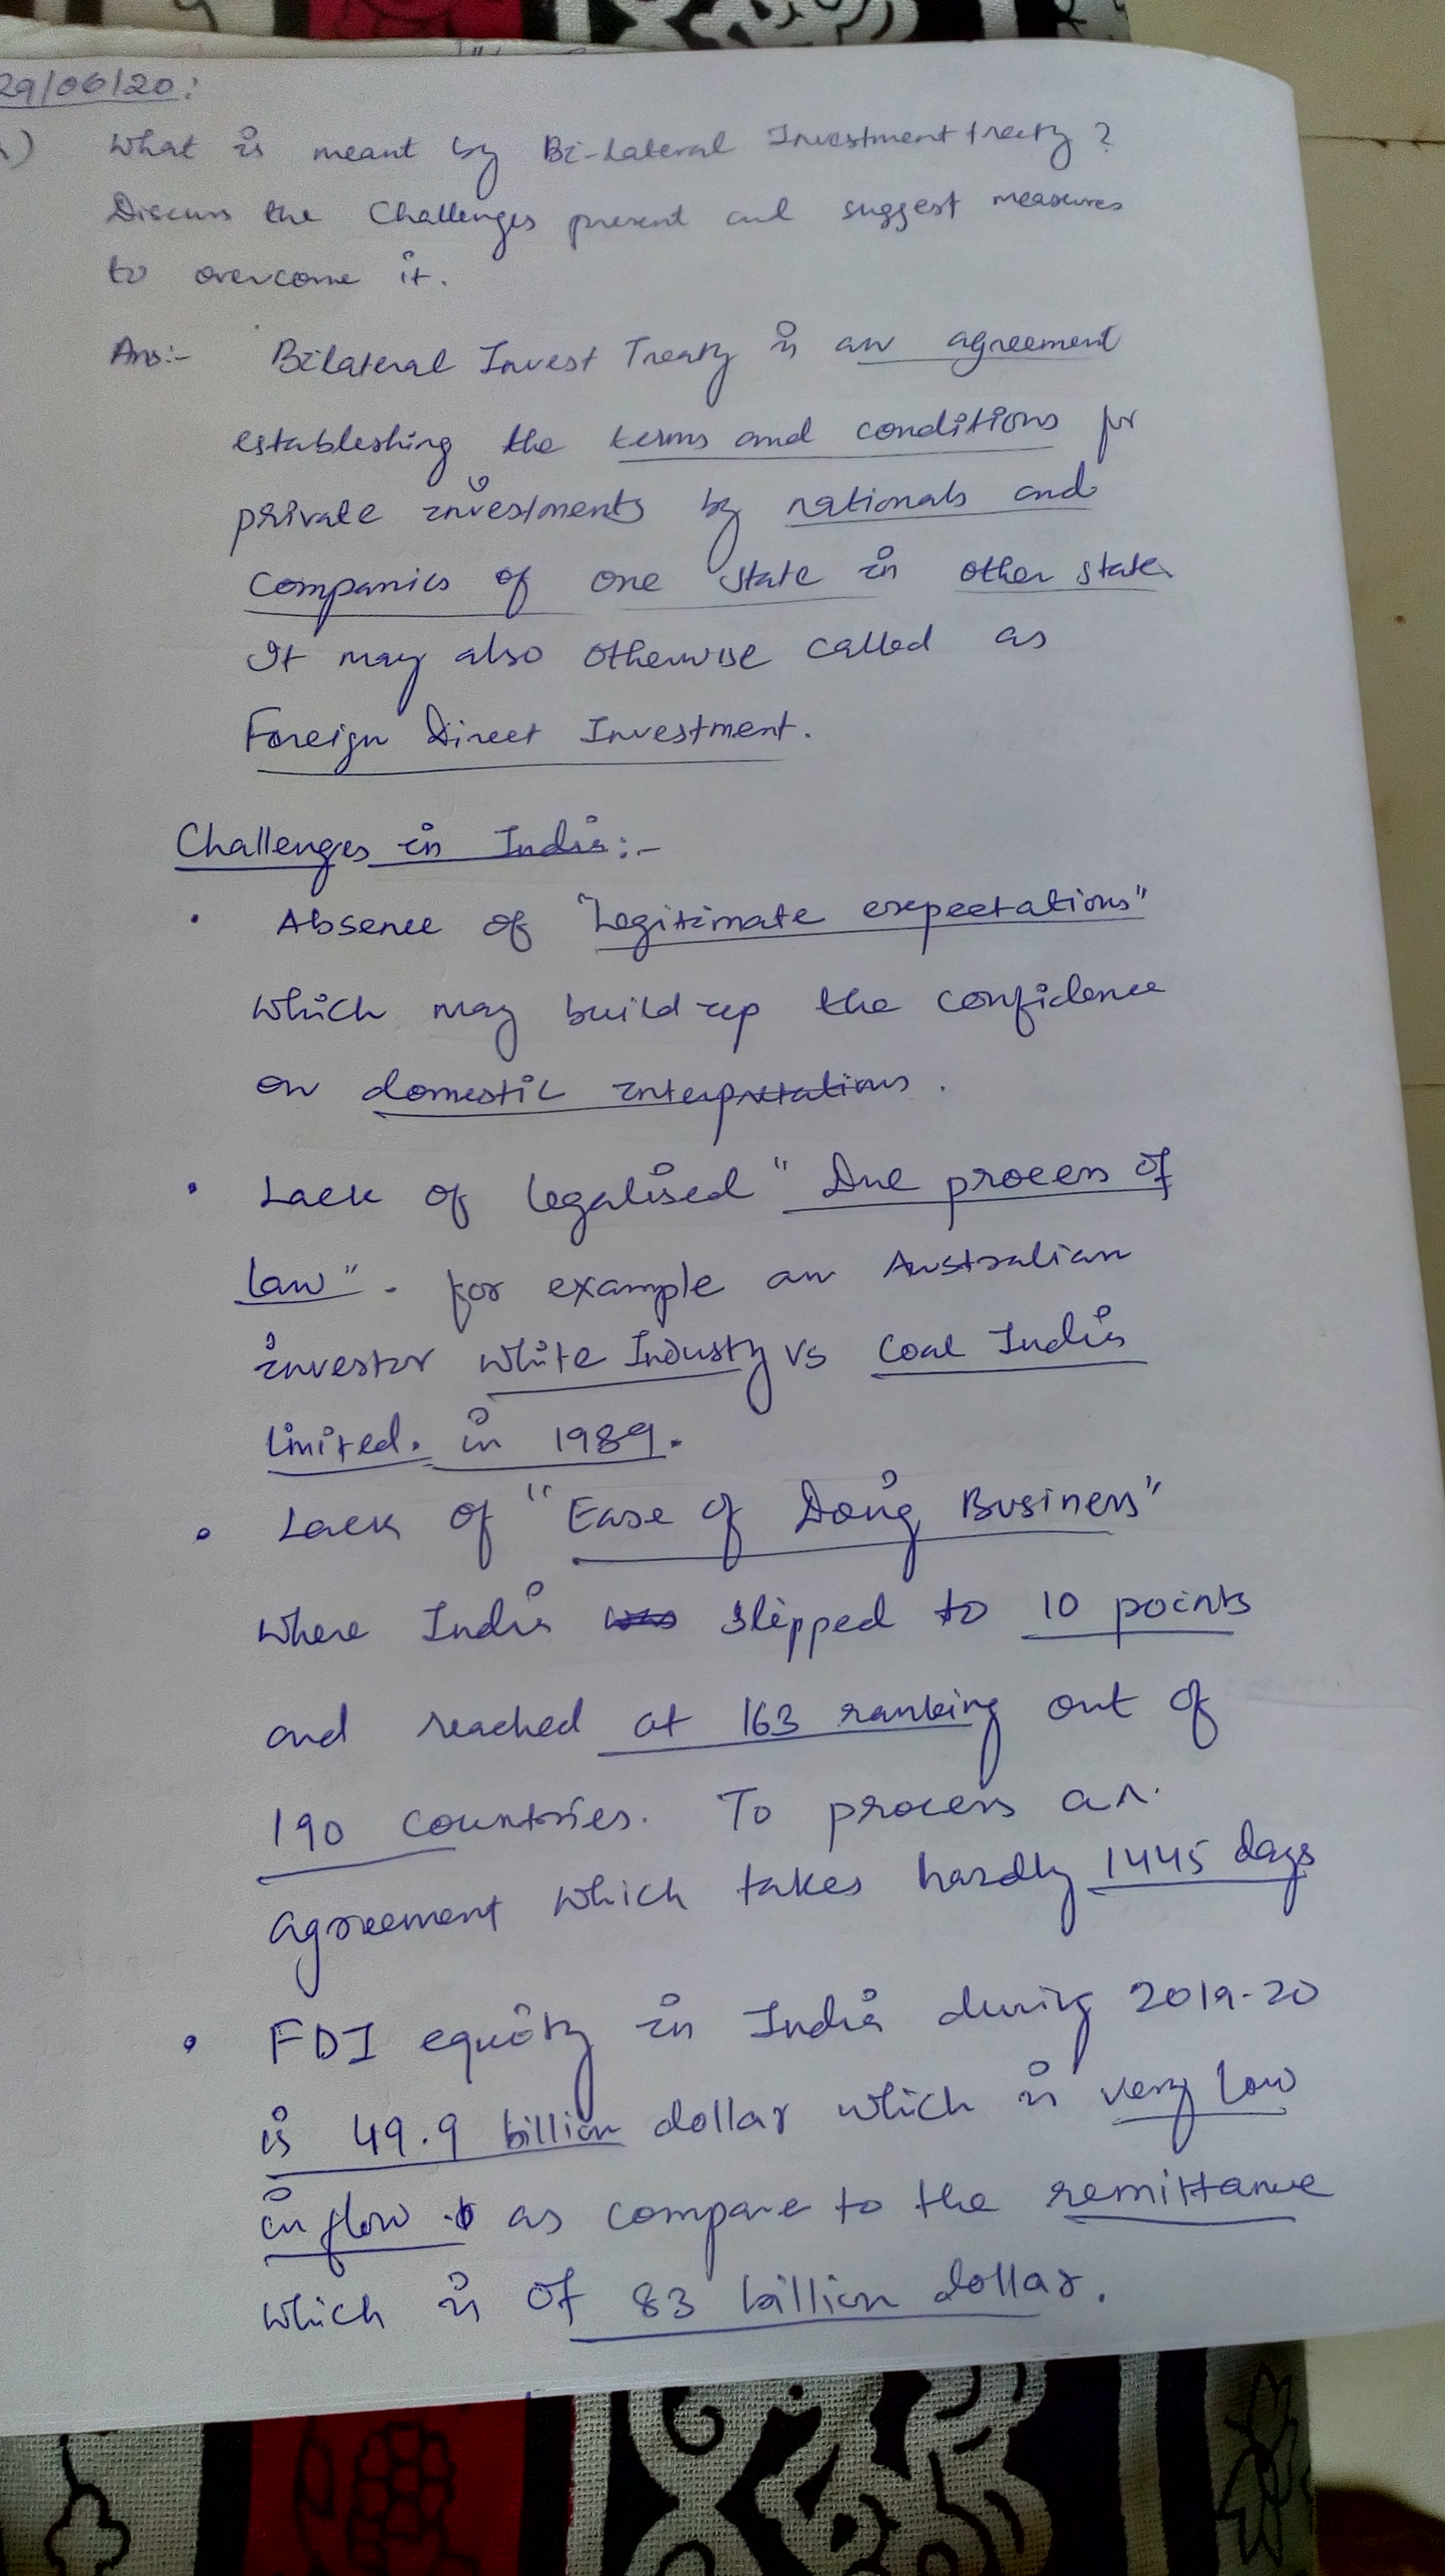 29/06/20:
What is meant by Bi-Lateral Investment treaty?
Discuss the Challenges present and suggest measures
to overcome it.
Ans:- Bilateral Invest Treaty is an agreement
establishing the terms and conditions for
private investments by nationals and
Companies of one state in other state.
It may also otherwise called as
Foreign Direct Investment.
Challenges in India:-
• Absence of "Legitimate expectations"
which may build up the confidence
on domestic interpretations.
• Lack of legalised "Due process of
law". for example an Australian
investor White Industy vs Coal India
limited. in 1989.
• Lack of "Ease of Doing Business"
where India slipped to 10 points
and reached at 163 ranking out of
190 countries. To process an
agreement which takes hardly 1445 days
• FDI equity in India during 2019-20
is 49.9 billion dollar which is very low
inflow as compare to the remittance
which is of 83 billion dollar.